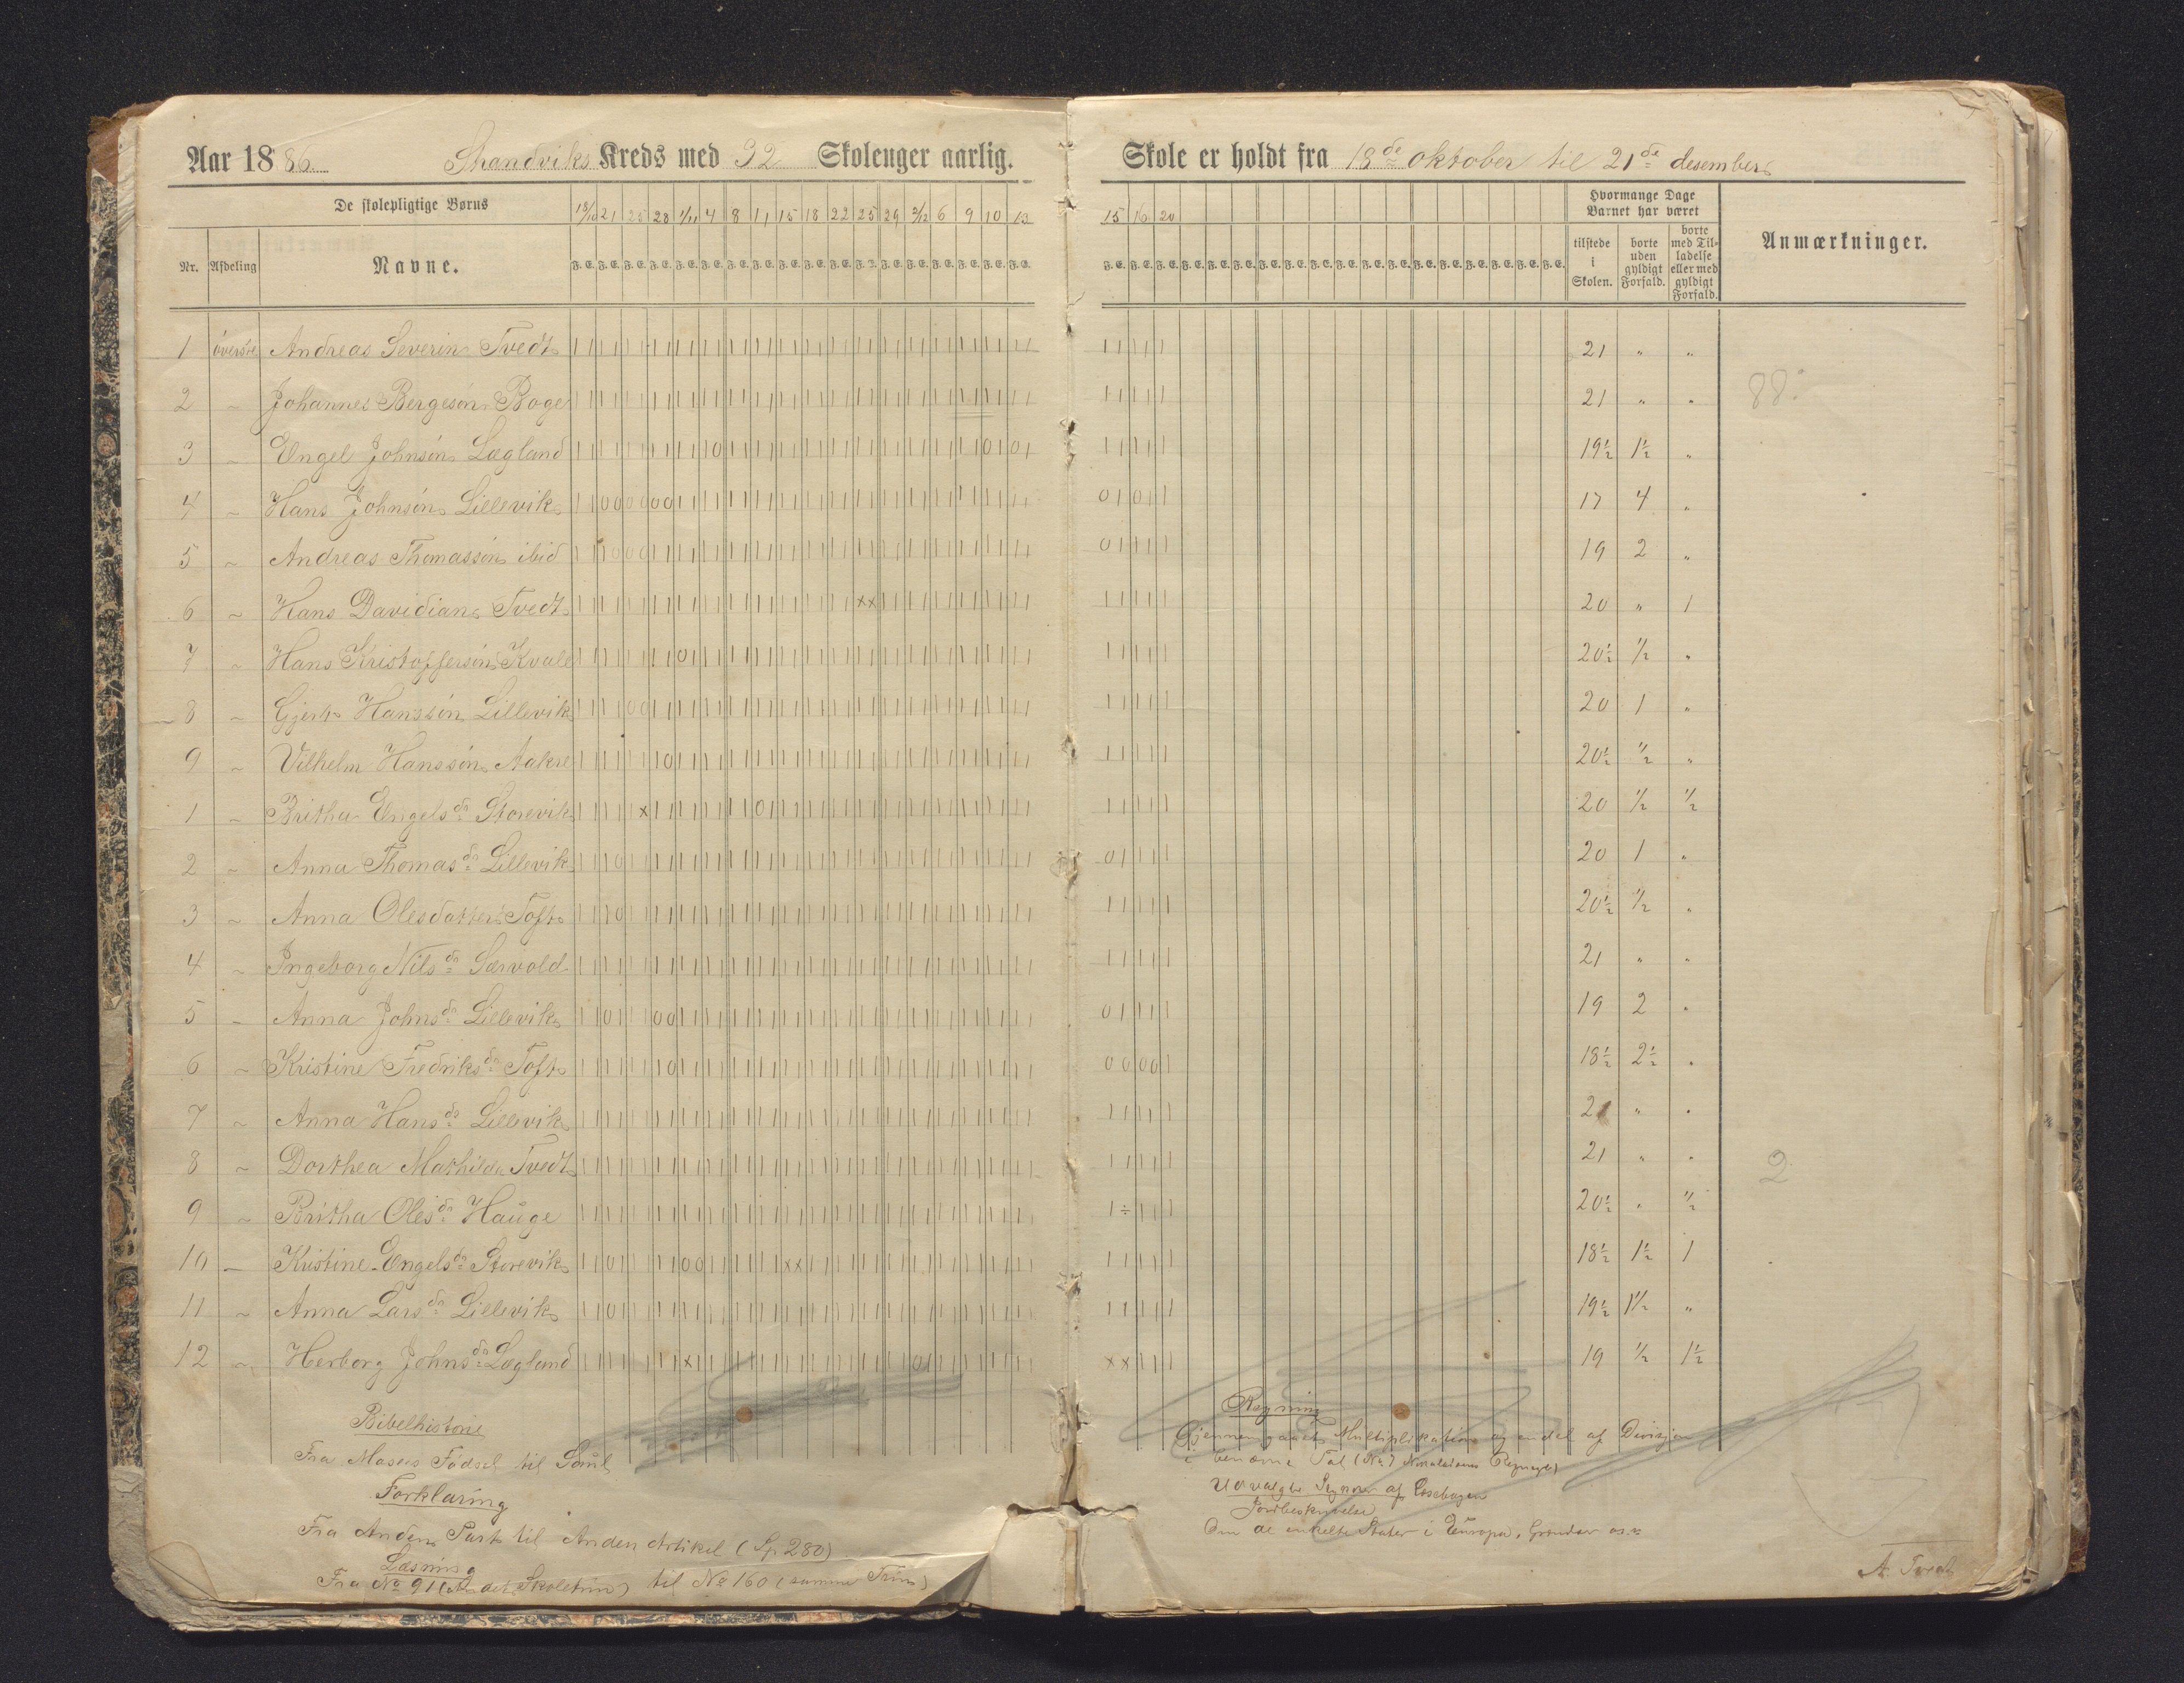 Aar 1886. Strandviks Kreds med 32 Skoleuger aarlig. Skole er holdt fra 18de oktober til 21de desember
De skolepligtige Børns 18/10 21 25 28 1/11 4 8 11 15 18 22 25 29 2/12 6 9 10 13 15 16 20 Hvormange Dage Barnet har været
Nr. Afdeling Navne. F.E. F.E. F.E. F.E. F.E. F.E. F.E. F.E. F.E. F.E. F.E. F.E. F.E. F.E. F.E. F.E. F.E. F.E. tilstede i Skolen. borte uden gyldigt Forfald. borte med Tilladelse eller med gyldigt Forfald. Anmærkninger.
1 øverste Andreas Severin Tvedt 21 " "
2 " Johannes Bergesøn Boge 21 " " 88.
3 " Engel Johnsøn Lægland 19½ 1½ "
4 " Hans Johnsøn Lillevik 17 4 "
5 " Andreas Thomassøn ibid 19 2 "
6 " Hans Davidian Tvedt 20 " 1
7 " Hans Kristoffersøn Kvale 20½ ½ "
8 " Gjert Hanssøn Lillevik 20 1 "
9 " Vilhelm Hanssøn Aakre 20½ ½ "
1 " Britha Engelsdr Storevik 20 ½ ½
2 " Anna Thomasdr Lillevik 20 1 "
3 " Anna Olesdatter Toft 20½ ½ "
4 " Ingeborg Nilsdr Særvold 21 " "
5 " Anna Johnsdr Lillevik 19 2 "
6 " Kristine Fredriksdr Toft 18½ 2½ "
7 " Anna Hansdr Lillevik 21 " "
8 " Dorthea Mathilda Tvedt 21 " " 2
9 " Britha Olesdr Hauge 20½ " ½
10 " Kristine Engelsdr Storevik 18½ 1½ 1
11 " Anna Larsdr Lillevik 19½ 1½ "
12 " Herborg Johnsdr Lægland 19 ½ 1½
Bibelhistorie
Fra Moses Fødsel til Saul
Forklaring
Fra Anden Part til Anden Artikel (Sp. 280)
Læsning
Fra No 91 (Andet Skoletrin) til No 160 (samme Trin)
Regning
Gjennemgaaet Multiplikation og endel af Division
i benævnte Tal (No 7 Nikolaisens Regnegb)
Udvalgte Stykker af Læsebogen
Jordbeskrivelse
Om de enkelte Stater i Europa,
A. Tvedt